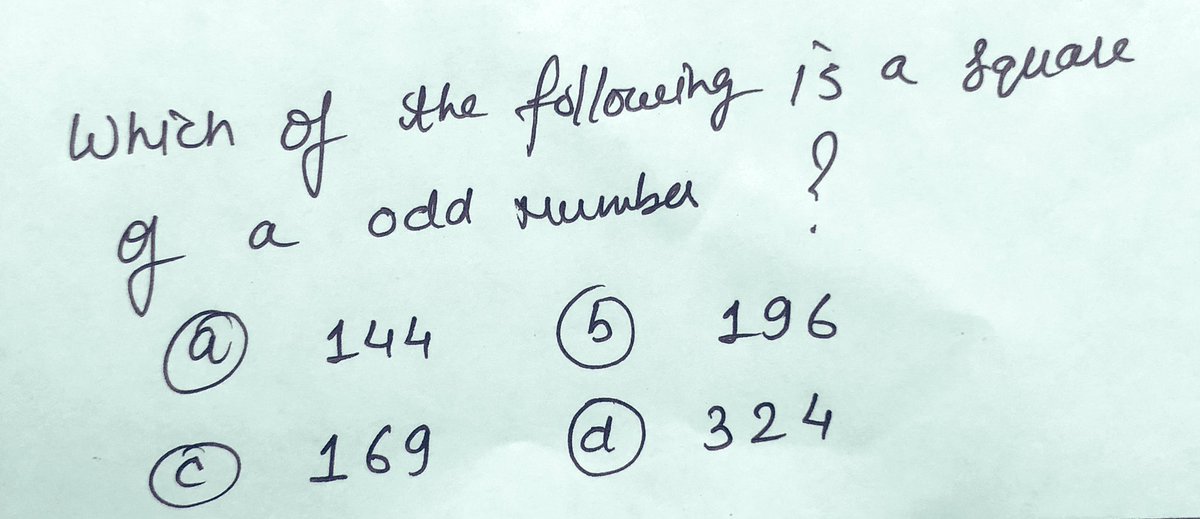 Which of the following is a square
of a odd number ?
(a) 144 (b) 196
(c) 169 (d) 324